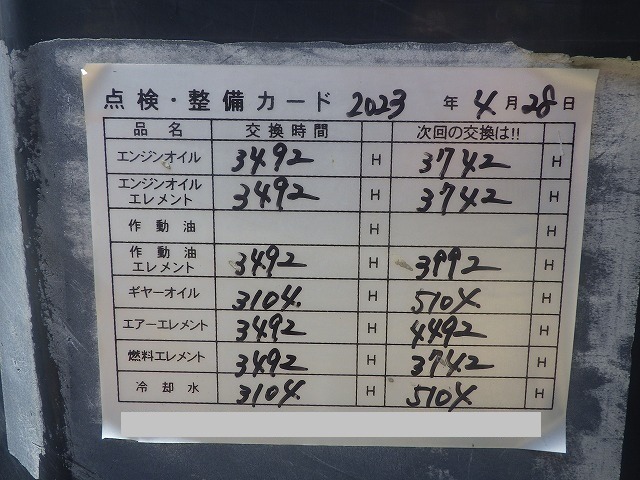 点検・整備カード 2023 年 4月 28日
品名 交換時間 次回の交換は!!
エンジンオイル 3492 H 3742 H
エンジンオイル
エレメント 3492 H 3742 H
作動油 H H
作動油
エレメント 3492 H 3992 H
ギヤーオイル 3104 H 5104 H
エアーエレメント 3492 H 4492 H
燃料エレメント 3492 H 3742 H
冷却水 3104 H 5104 H